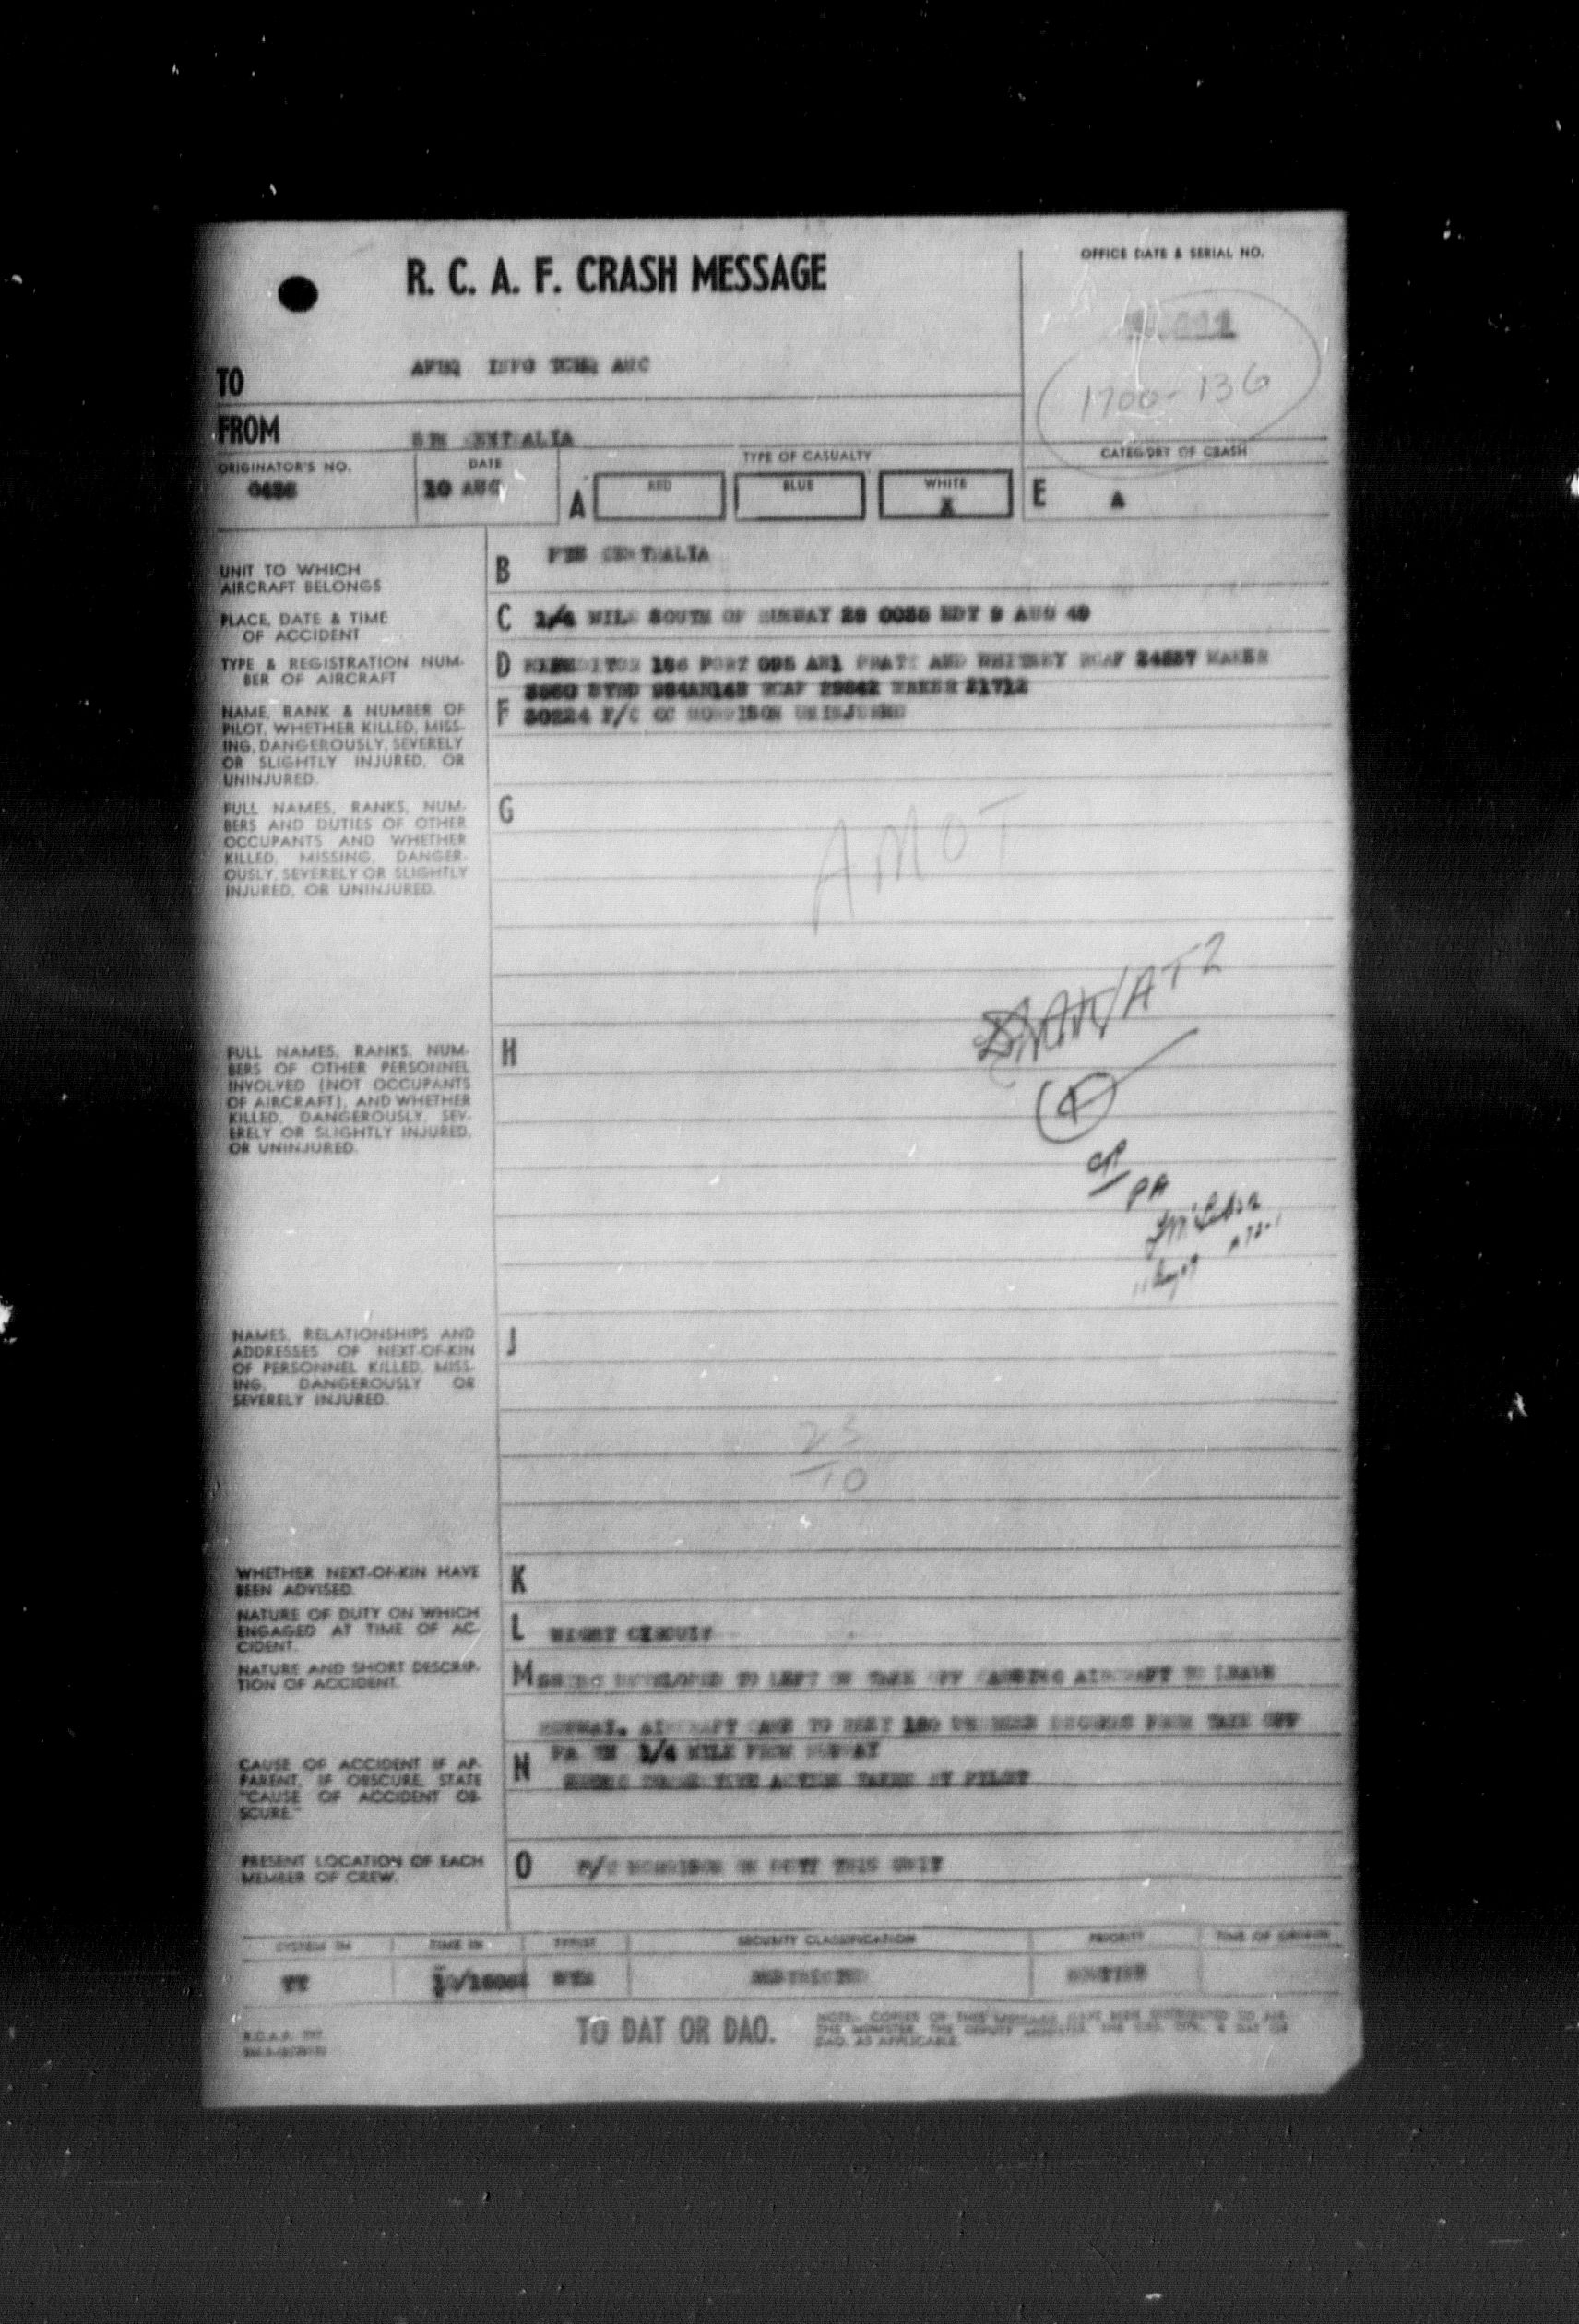 R. C. A. F. CRASH MESSAGE
OFFICE DATE & SERIAL NO.
1700-136
TO AFHQ INFO TCHQ AMC
FROM STN CENTRALIA
ORIGINATOR'S NO.
DATE
10 AUG
TYPE OF CASUALTY
A RED BLUE WHITE X
CATEGORY OF CRASH
E A
UNIT TO WHICH
AIRCRAFT BELONGS
B FTS CENTRALIA
PLACE, DATE & TIME
OF ACCIDENT
C 1/4 MILE SOUTH OF RUNWAY 28 0035 EDT 9 AUG 49
TYPE & REGISTRATION NUM-
BER OF AIRCRAFT
D EXPEDITOR PORT AN1 PRATT AND WHITNEY RCAF MAKER
STBD RCAF MAKER 21712
NAME, RANK & NUMBER OF
PILOT, WHETHER KILLED, MISS-
ING, DANGEROUSLY, SEVERELY
OR SLIGHTLY INJURED, OR
UNINJURED.
F 30224 F/C CC MORRISON UNINJURED
FULL NAMES, RANKS, NUM-
BERS AND DUTIES OF OTHER
OCCUPANTS AND WHETHER
KILLED, MISSING, DANGER-
OUSLY, SEVERELY OR SLIGHTLY
INJURED, OR UNINJURED.
G
AMOT
/AT2
FULL NAMES, RANKS, NUM-
BERS OF OTHER PERSONNEL
INVOLVED (NOT OCCUPANTS
OF AIRCRAFT), AND WHETHER
KILLED, DANGEROUSLY, SEV-
ERELY OR SLIGHTLY INJURED,
OR UNINJURED.
H
PA
NAMES, RELATIONSHIPS AND
ADDRESSES OF NEXT-OF-KIN
OF PERSONNEL KILLED, MISS-
ING, DANGEROUSLY OR
SEVERELY INJURED.
J
23
10
WHETHER NEXT-OF-KIN HAVE
BEEN ADVISED.
K
NATURE OF DUTY ON WHICH
ENGAGED AT TIME OF AC-
CIDENT.
L NIGHT CIRCUIT
NATURE AND SHORT DESCRIP-
TION OF ACCIDENT.
M SWING DEVELOPED TO LEFT ON TAKE OFF CAUSING AIRCRAFT TO LEAVE
RUNWAY. AIRCRAFT CAME TO REST 180 DEGREES FROM TAKE OFF
PATH 1/4 MILE FROM RUNWAY
CAUSE OF ACCIDENT IF AP-
PARENT, IF OBSCURE, STATE
"CAUSE OF ACCIDENT OB-
SCURE."
N CORRECTIVE ACTION TAKEN BY PILOT
PRESENT LOCATION OF EACH
MEMBER OF CREW.
O F/C MORRISON ON DUTY THIS UNIT
SYSTEM IN
TIME IN
SECURITY CLASSIFICATION
PRIORITY
TIME OF ORIGIN
TT
RESTRICTED
ROUTINE
TO DAT OR DAO.
NOTE: COPIES OF THIS MESSAGE HAVE BEEN DISTRIBUTED TO
THE MINISTER, THE DEPUTY MINISTER,
DAO, AS APPLICABLE.